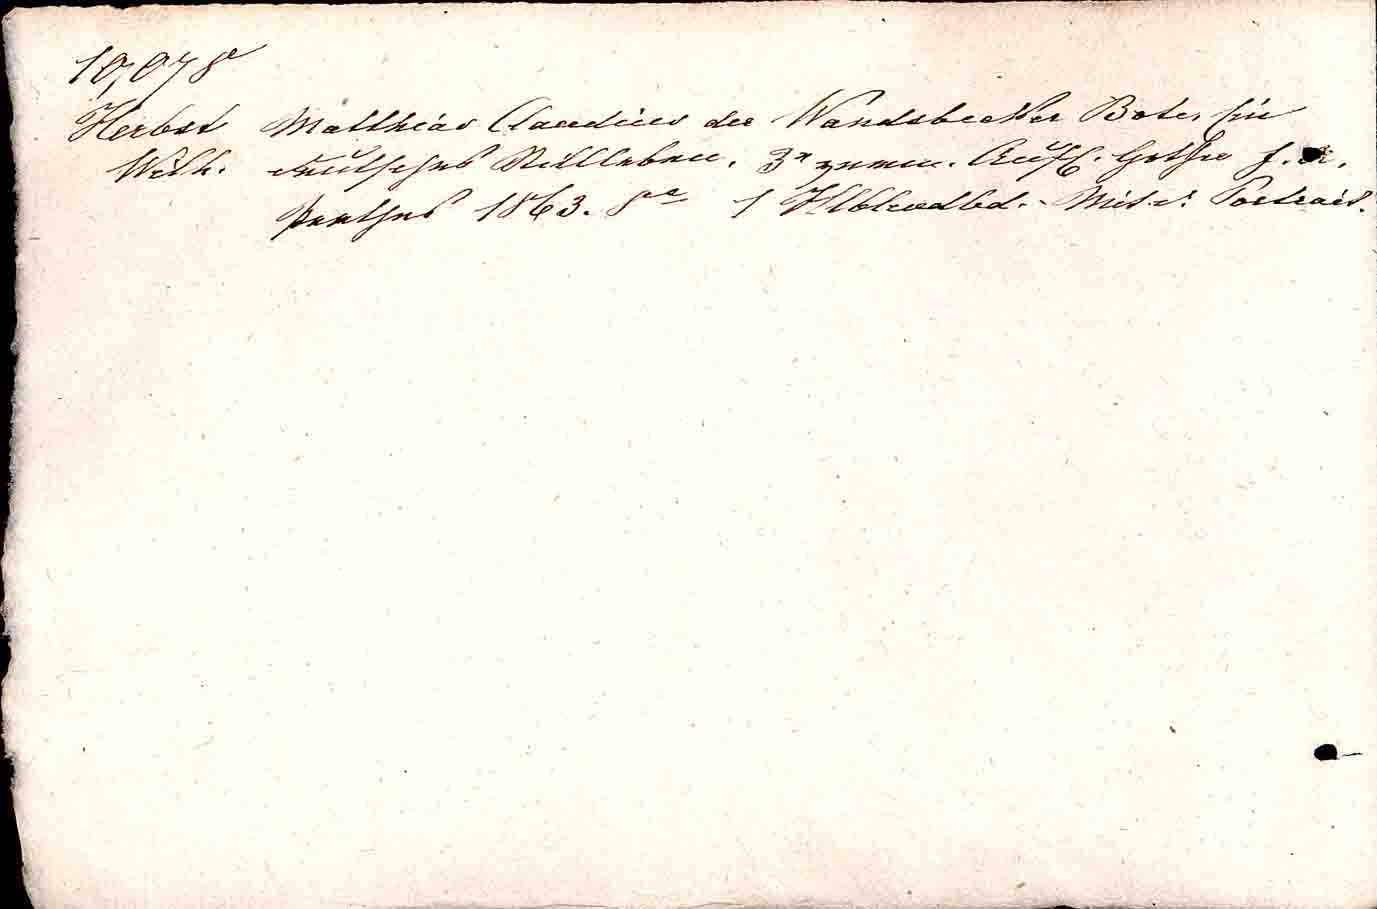 10,078
Herbst Matthias Claudius der Wandsbecker Bote, ein
Wilh. deutsches Stillleben. 3e verm. Aufl. Gotha F. A.
Perthes 1863. 8° 1 Hlblwdbd. - Mit e. Portrait.